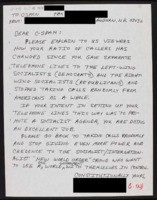 TO: CSPAN
DEAR CSPAN:
PLEASE EXPLAIN TO US VIEWERS
HOW YOUR RATIO OF CALLERS HAS
CHANGED SINCE YOU GAVE SEPARATE
TELEPHONE LINES TO THE LEFT-WING
SOCIALISTS (DEMOCRATS) AND THE RIGHT-
WING SOCIALISTS (REPUBLICANS) AND
STOPPED TAKING CALLS RANDOMLY FROM
AMERICANS AS A WHOLE.
IF YOUR INTENT IN SETTING UP YOUR
TELEPHONE LINES THIS WAY WAS TO PRO-
MOTE A SOCIALIST AGENDA, YOU ARE DOING
AN EXCELLENT JOB.
PLEASE GO BACK TO TAKING CALLS RANDOMLY
AND STOP GIVING EVEN MORE POWER AND
CREDENCE TO THE SOCIALIST/INTERNATION-
ALIST "NEW WORLD ORDER" CROWD WHO WANT
TO SEE A WORLD WITH THEMSELVES IN CONTROL
CONSTITUTIONALLY YOURS,